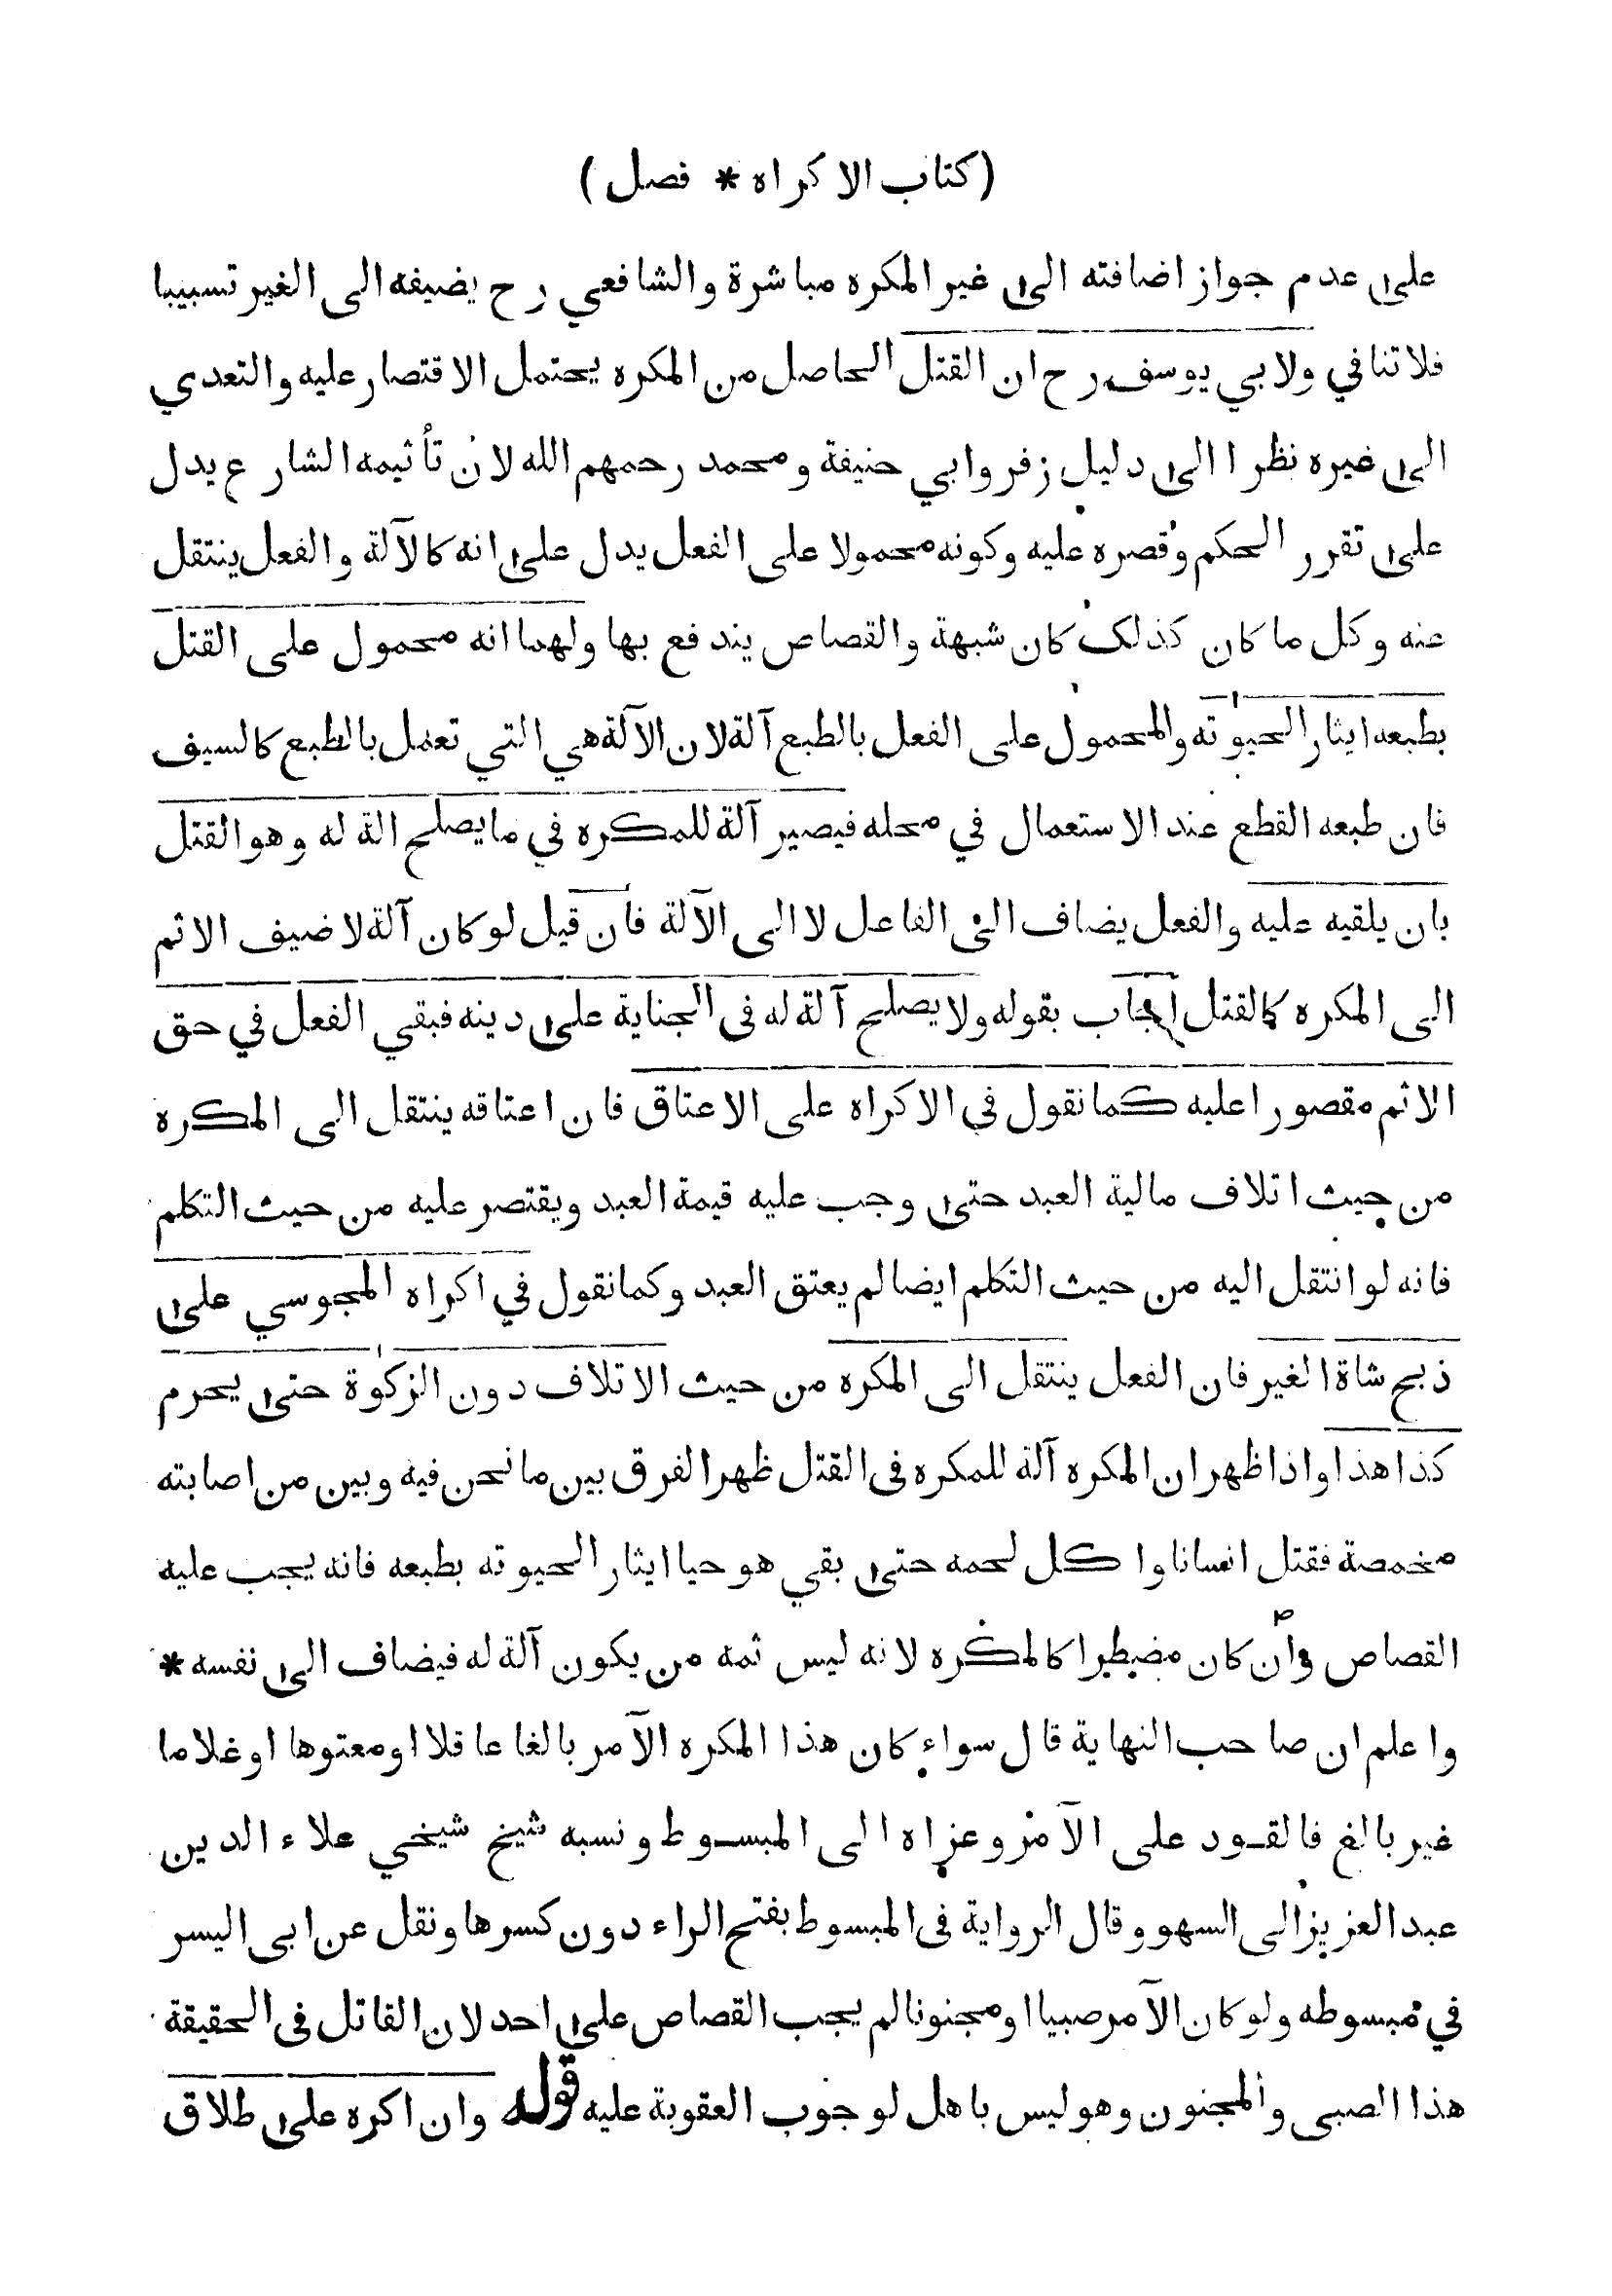 (كتاب الاكراه * فصل)
على عدم جواز اضافته الى غير المكره مباشرة والشافعي رح يضيفه الى الغير تسبيبا
فلا تنافي ولابي يوسف رح ان القتل الحاصل من المكره يحتمل الاقتصار عليه والتعدي
الى غيره نظرا الى دليل زفر وابي حنيفة ومحمد رحمهم الله لان تأثيمه الشارع يدل
على تقرر الحكم وقصره عليه وكونه محمولا على الفعل يدل على انه كالآلة والفعل ينتقل
عنه وكل ما كان كذلك كان شبهة والقصاص يندفع بها ولهما انه محمول على القتل
بطبعه ايثارا لحيوته والمحمول على الفعل بالطبع آلة لان الآلة هي التي تعمل بالطبع كالسيف
فان طبعه القطع عند الاستعمال في محله فيصير آلة للمكره في ما يصلح الة له وهو القتل
بان يلقيه عليه والفعل يضاف الى الفاعل لا الى الآلة فان قيل لو كان آلة لاضيف الاثم
الى المكره كالقتل اجاب بقوله ولا يصلح آلة له في الجناية على دينه فبقي الفعل في حق
الاثم مقصورا عليه كما نقول في الاكراه على الاعتاق فان اعتاقه ينتقل الى المكره
من حيث اتلاف مالية العبد حتى وجب عليه قيمة العبد ويقتصر عليه من حيث التكلم
فانه لو انتقل اليه من حيث التكلم ايضا لم يعتق العبد وكما نقول في اكراه المجوسي على
ذبح شاة الغير فان الفعل ينتقل الى المكره من حيث الاتلاف دون الزكوة حتى يحرم
كذا هذا واذا ظهر ان المكره آلة للمكره في القتل ظهر الفرق بين ما نحن فيه وبين من اصابته
مخمصة فقتل انسانا واكل لحمه حتى بقي هو حيا ايثارا لحيوته بطبعه فانه يجب عليه
القصاص وان كان مضطرا كالمكره لانه ليس ثمه من يكون آلة له فيضاف الى نفسه *
واعلم ان صاحب النهاية قال سواء كان هذا المكره الآمر بالغا عاقلا او معتوها او غلاما
غير بالغ فالقود على الآمر وعزاه الى المبسوط ونسبه شيخ شيخي علاء الدين
عبد العزيز الى السهو وقال الرواية في المبسوط بفتح الراء دون كسرها ونقل عن ابى اليسر
في مبسوطه ولو كان الآمر صبيا او مجنونا لم يجب القصاص على احد لان القاتل في الحقيقة
هذا الصبى والمجنون وهو ليس باهل لوجوب العقوبة عليه قوله وان اكره على طلاق